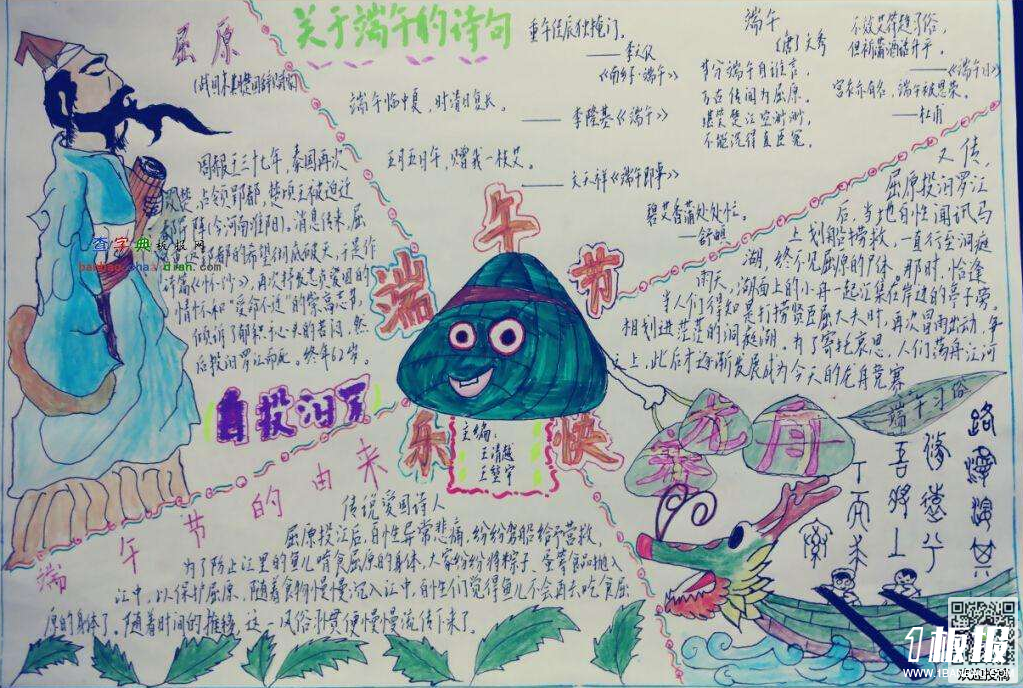 关于端午的诗句
屈原
端午临中夏，时清日复长。
——李隆基《端午》
五月五日午，赠我一枝艾。
——文天祥《端午即事》
重午佳辰独掩门。
《南乡子·端午》
端午
(唐)文秀
节分端午自谁言，
万古传闻为屈原。
堪笑楚江空渺渺，
不能洗得直臣冤。
但祈蒲酒话升平。
宫衣亦有名，端午被恩荣。
——杜甫
碧艾香蒲处处忙。
——舒頔
周赧王三十七年，秦国再次
占领郢都，楚顷王被迫迁
都于陈(今河南淮阳)。消息传来，屈
情怀和"爱命不迁"的崇高志节，
后投汨罗江而死。终年62岁。
查字典板报网
自投汨罗
端午节
快乐
主编：
又传，
屈原投汨罗江
后，当地百姓闻讯马
上划船捞救，一直行至洞庭
湖，终不见屈原的尸体。那时，恰逢
雨天，湖面上的小舟一起汇集在岸边的亭子旁。
当人们得知是打捞贤臣屈大夫时，再次冒雨出动，争
相划进茫茫的洞庭湖。为了寄托哀思，人们荡舟江河
之上，此后才逐渐发展成为今天的龙舟竞赛
赛龙舟
端午习俗
端午节的由来
传说爱国诗人
屈原投江后，百姓异常悲痛，纷纷驾船给予营救。
为了防止江里的鱼儿啃食屈原的身体，大家纷纷将粽子、蛋等食品抛入
江中，以保护屈原。随着食物慢慢沉入江中，百姓们觉得鱼儿不会再去吃食屈
原的身体了。随着时间的推移，这一风俗习惯便慢慢流传下来了。
路漫漫其
修远兮
吾将上
下而求
索
1板报
WWW.1BANBAO.COM
欢迎投稿